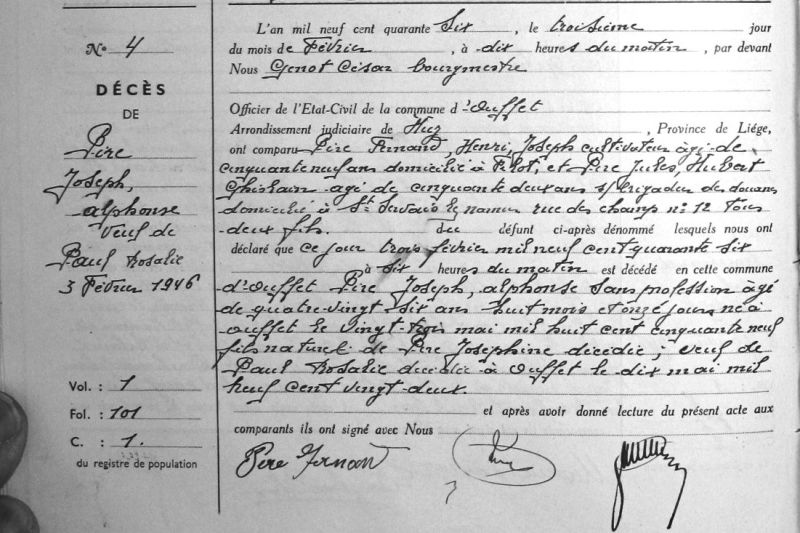 N° 4
DÉCÈS
DE
Pire
Joseph,
alphonse
veuf de
Paul Rosalie
3 Février 1946
Vol. : 1
Fol. : 101
C. : 1.
du registre de population
L'an mil neuf cent quarante Six, le troisième jour
du mois de Février, à dix heures du matin, par devant
Nous Genot César bourgmestre
Officier de l'Etat-Civil de la commune d'Ouffet
Arrondissement judiciaire de Huy, Province de Liége,
ont comparu Pire Fernand, Henri, Joseph cultivateur âgé de
cinquante neuf ans domicilié à Filot, et Pire Jules, Hubert
Ghislain agé de cinquante deux ans s/brigadier des douanes
domicilié à St Servais lz namur rue des champs n° 12 tous
deux fils. du défunt ci-après dénommé lesquels nous ont
déclaré que ce jour trois février mil neuf cent quarante six
à six heures du matin est décédé en cette commune
d'Ouffet Pire Joseph, alphonse sans profession âgé
de quatre-vingt six ans huit mois et onze jours né à
Ouffet le vingt-trois mai mil huit cent cinquante neuf
fils naturel de Pire Joséphine décédée; veuf de
Paul Rosalie décédée à Ouffet le dix mai mil
neuf cent vingt-deux.
et après avoir donné lecture du présent acte aux
comparants ils ont signé avec Nous
Pire Fernand